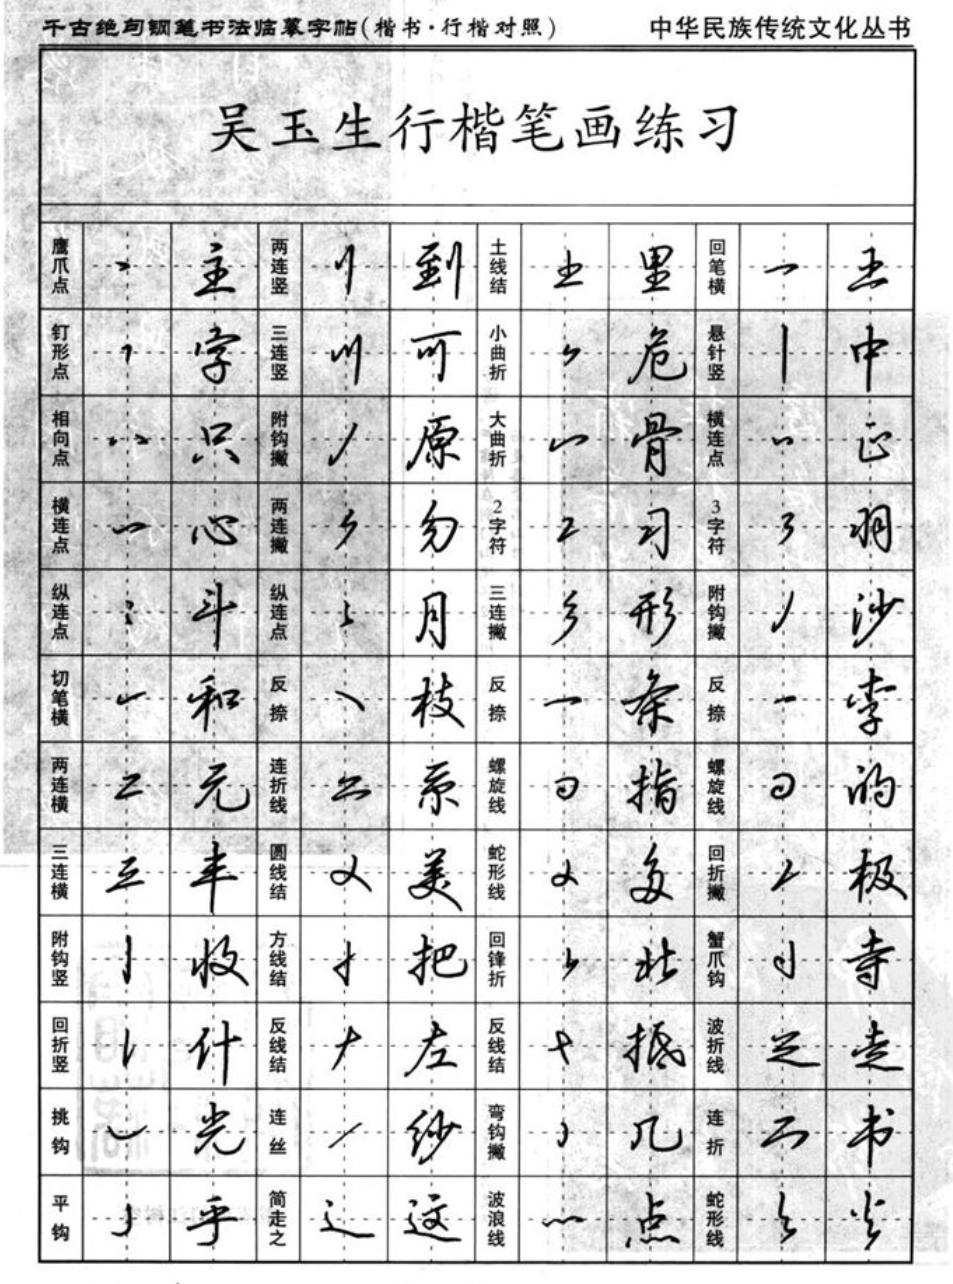 千古绝句钢笔书法临摹字帖(楷书·行楷对照) 中华民族传统文化丛书
吴玉生行楷笔画练习
鹰爪点 主 两连竖 到 土线结 里 回笔横 王
钉形点 字 三连竖 可 小曲折 危 悬针竖 中
相向点 只 附钩撇 原 大曲折 骨 横连点 正
横连点 心 两连撇 勿 2字符 习 3字符 羽
纵连点 斗 纵连点 月 三连撇 形 附钩撇 沙
切笔横 和 反捺 枝 反捺 条 反捺 李
两连横 元 连折线 系 螺旋线 指 螺旋线 的
三连横 丰 圆线结 美 蛇形线 多 回折撇 极
附钩竖 收 方线结 把 回锋折 北 蟹爪钩 寺
回折竖 什 反线结 左 反线结 抵 波折线 走
挑钩 光 连丝 纱 弯钩撇 几 连折 书
平钩 乎 简走之 这 波浪线 点 蛇形线